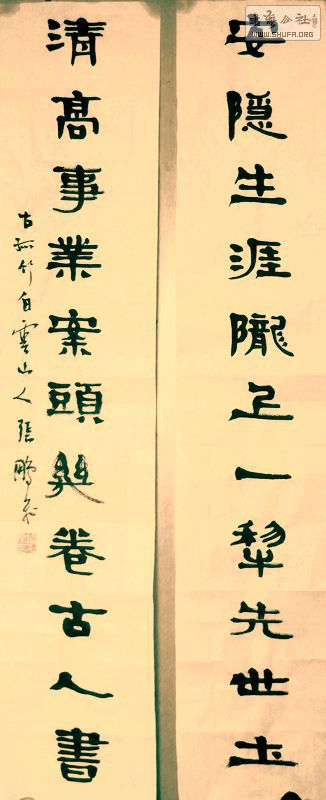 安隱生涯隴上一犂先世土
清髙事業案頭幾卷古人書
古孤竹白雲山人張鵬飛
WWW.SHUFA.ORG